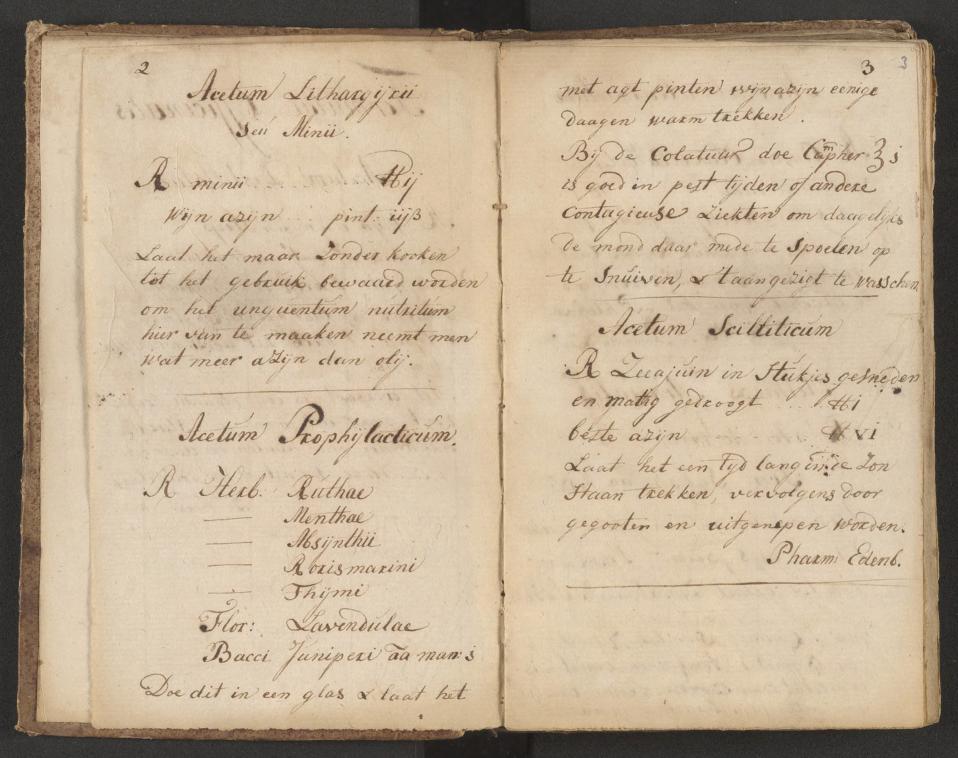 2
Acetum Lithargijrii
seu Minii.
℞ minii ℔ij
Wijn azijn . . . pint: iijß
Laat het maar zonder kooken
tot het gebruik bewaard worden
om het unguentum nutritum
hier van te maaken neemt men
wat meer azijn dan olij.
Acetum Prophijlacticum.
℞ Herb. Ruthae
— Menthae
— Absijnthii
— Rorismarini
— Thijmi
Flor: Lavendulae
Bacci Juniperi aa man: j
Doe dit in een glas & laat het
3 3
met agt pinten wijnazijn eenige
daagen warm trekken.
Bij de Colatuur doe Campher ʒj
is goed in pest tijden of andere
Contagieuse ziekten om daagelijks
de mond daar mede te spoelen op
te snuiven, & 't aangezigt te wasschen
Acetum Scilliticum
℞ Zeeajuin in stukjes gesneden
en matig gedroogt . . . ℔i
beste azijn . . . ℔vi
Laat het een tijd lang in de Zon
staan trekken, vervolgens door
gegooten en uitgenepen worden.
Pharm: Edenb.